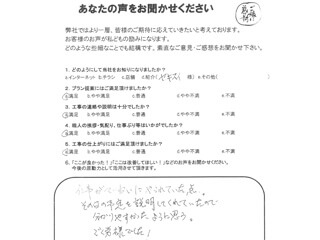 あなたの声をお聞かせください
弊社ではより一層、皆様のご期待に応えていきたいと考えております。
お客様のお声が私どもの励みになります。
どのような些細なことでも結構です。素直なご意見・ご感想をお聞かせ下さい。
1. どのようにして当社をお知りになりましたか?
a.インターネット b.チラシ c.店舗 d.紹介( 様) e.その他(
2. プラン提案にはご満足頂けましたか?
a.満足 b.やや満足 c.普通 d.やや不満 e.不満
3. 工事の連絡や説明は十分でしたか?
a.満足 b.やや満足 c.普通 d.やや不満 e.不満
4. 職人の挨拶・気配り、仕事ぶり等はいかがでしたか?
a.満足 b.やや満足 c.普通 d.やや不満 e.不満
5. 工事の仕上がりにはご満足頂けましたか?
a.満足 b.やや満足 c.普通 d.やや不満 e.不満
6. 「ここが良かった!」「ここは改善してほしい!」などのお声をお聞かせください。
今後の原動力として活用させて頂きます!
工事がていねいにやられていた点。
その日の予定を説明してくれていたので
分かりやすかったように思う。
ご苦労様でした!